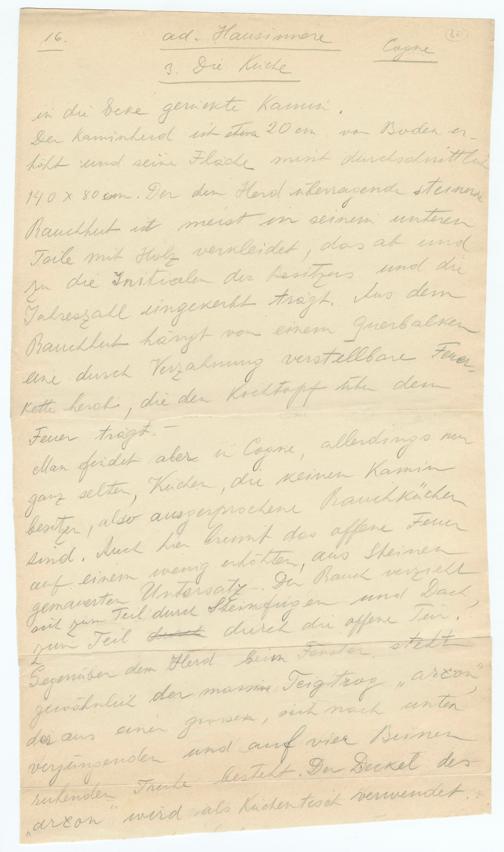 16. ad. Hausinnere Cogne
3. Die Küche
in die Ecke gerückte Kamin.
Der Kaminherd ist etwa 20 cm vom Boden er-
höht und seine Fläche misst durchschnittlich
140 x 80 cm. Der den Herd überragende steinerne
Rauchhut ist meist in seinem unteren
Teile mit Holz verkleidet, das ab und
zu die Initialen des Besitzers und die
Jahreszahl eingekerbt trägt. Aus dem
Rauchhut hängt von einem Querbalken
eine durch Verzahnung verstellbare Feuer-
kette herab, die den Kochtopf über dem
Feuer trägt. –
Man findet aber in Cogne, allerdings nur
ganz selten, Küchen, die keinen Kamin
besitzen, also ausgesprochene Rauchküchen
sind. Auch hier brennt das offene Feuer
auf einem wenig erhöhten, aus Steinen
gemauerten Untersatz. Der Rauch verzieht
sich zum Teil durch Steinfugen und Dach,
zum Teil durch die offene Tür.
Gegenüber dem Herd beim Fenster steht
gewöhnlich der massive Teigtrog „arzon",
der aus einer grossen, sich nach unten
verjüngenden und auf vier Beinen
ruhenden Truhe besteht. Der Deckel des
„arzon" wird als Küchentisch verwendet.